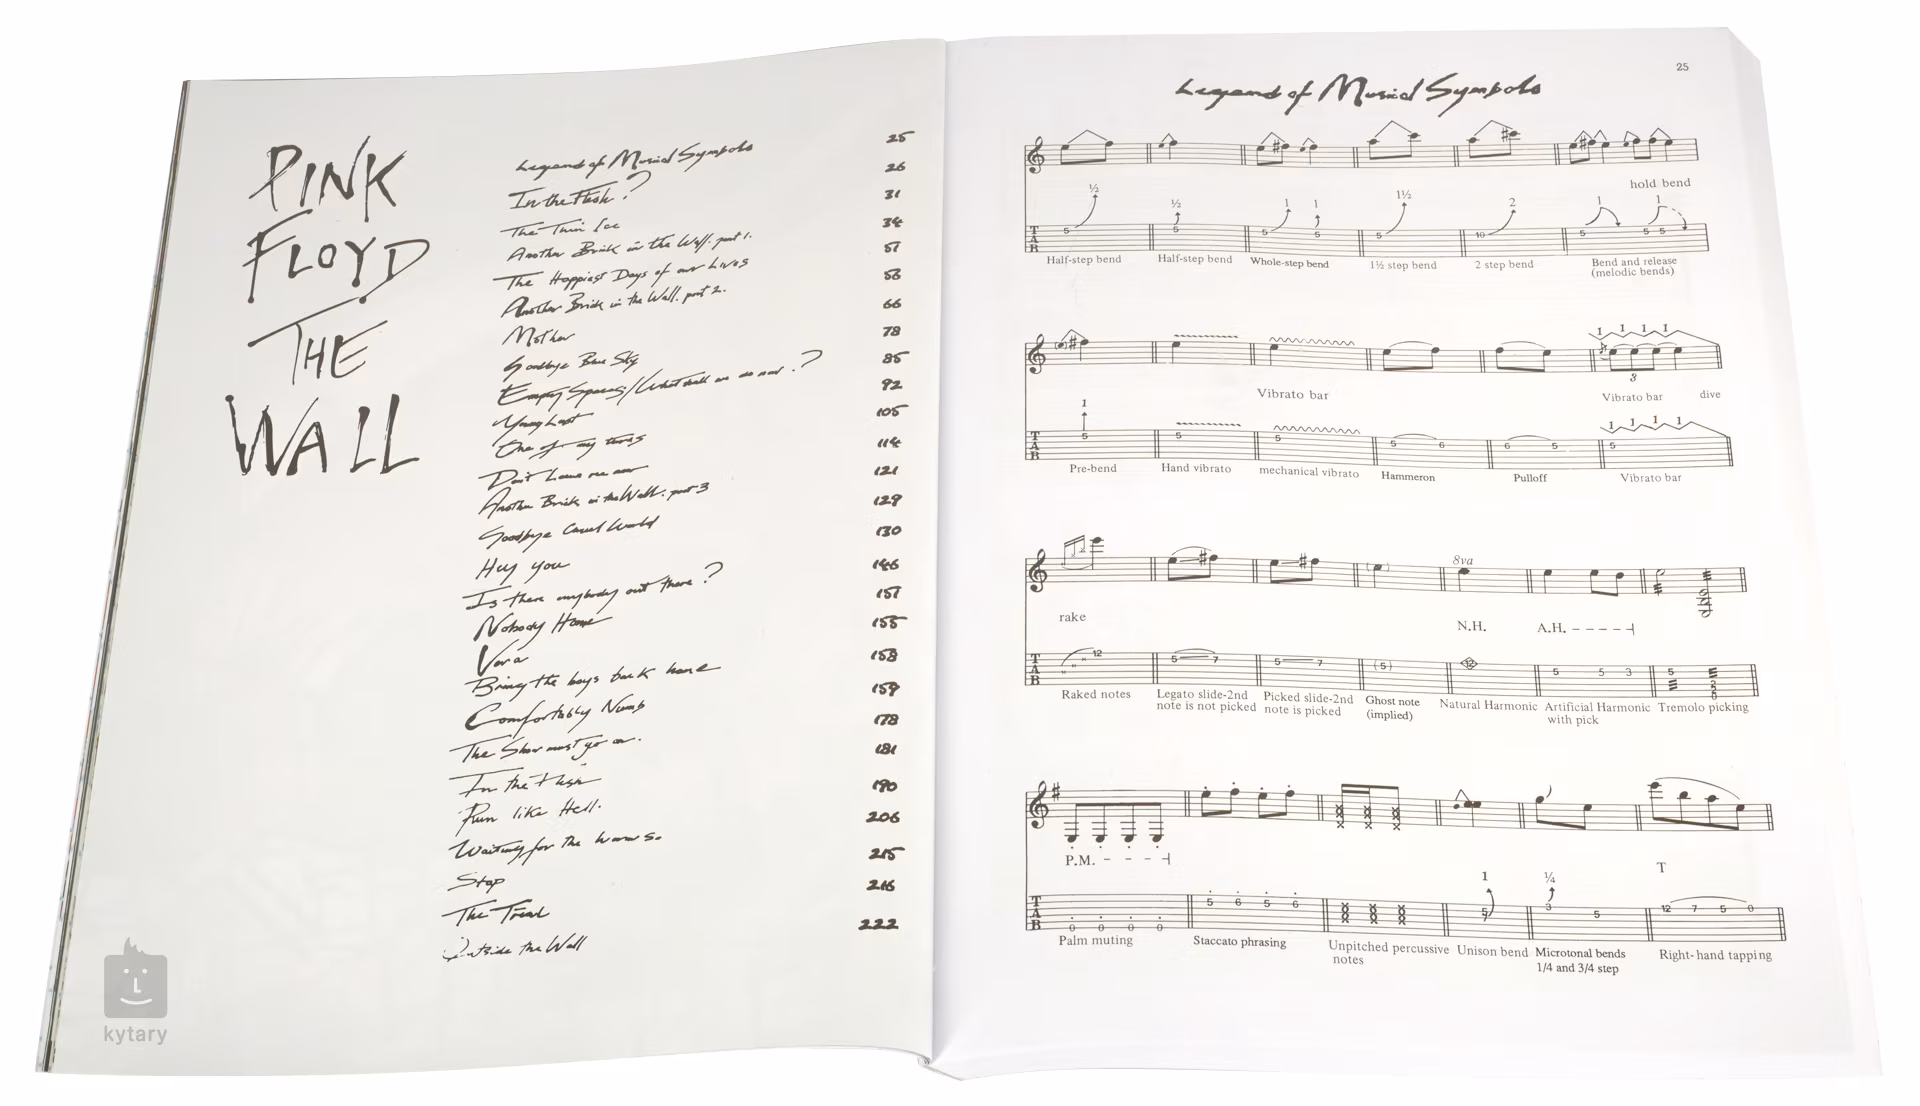 PINK
FLOYD
THE
WALL
Legend of Musical Symbols 25
In the Flesh? 26
The Thin Ice 31
Another Brick in the Wall. part 1. 34
The Happiest Days of our Lives
Another Brick in the Wall. part 2.
Mother 66
Goodbye Blue Sky 78
Empty Spaces/What shall we do now.? 85
Young Lust 92
One of my turns 105
Don't Leave me now 114
Another Brick in the Wall. part 3 121
Goodbye Cruel World 129
Hey you 130
Is there anybody out there? 146
Nobody Home 151
Vera 155
Bring the boys back home 158
Comfortably Numb 159
The Show must go on. 178
In the Flesh 181
Run like Hell. 190
Waiting for the Worms. 206
Stop 215
The Trial 216
Outside the Wall 222
kytary
25
Legend of Musical Symbols
hold bend
½ ½ 1 1 1½ 2 1 1
TAB 5 5 5 5 5 10 5 5 5
Half-step bend Half-step bend Whole-step bend 1½ step bend 2 step bend Bend and release
(melodic bends)
1 1 1 1
3
Vibrato bar Vibrato bar dive
1 1 1 1 1
TAB 5 5 5 5 6 6 5 5
Pre-bend Hand vibrato mechanical vibrato Hammeron Pulloff Vibrato bar
8va
rake N.H. A.H. - - - - -
TAB 12 5 7 5 7 (5) 12 5 5 3 5
Raked notes Legato slide-2nd Picked slide-2nd Ghost note Natural Harmonic Artificial Harmonic Tremolo picking
note is not picked note is picked (implied) with pick
P.M. - - - - T
1 ¼
TAB 0 0 0 0 5 6 5 6 x x x 5 3 5 12 7 5 0
Palm muting Staccato phrasing Unpitched percussive Unison bend Microtonal bends Right-hand tapping
notes 1/4 and 3/4 step